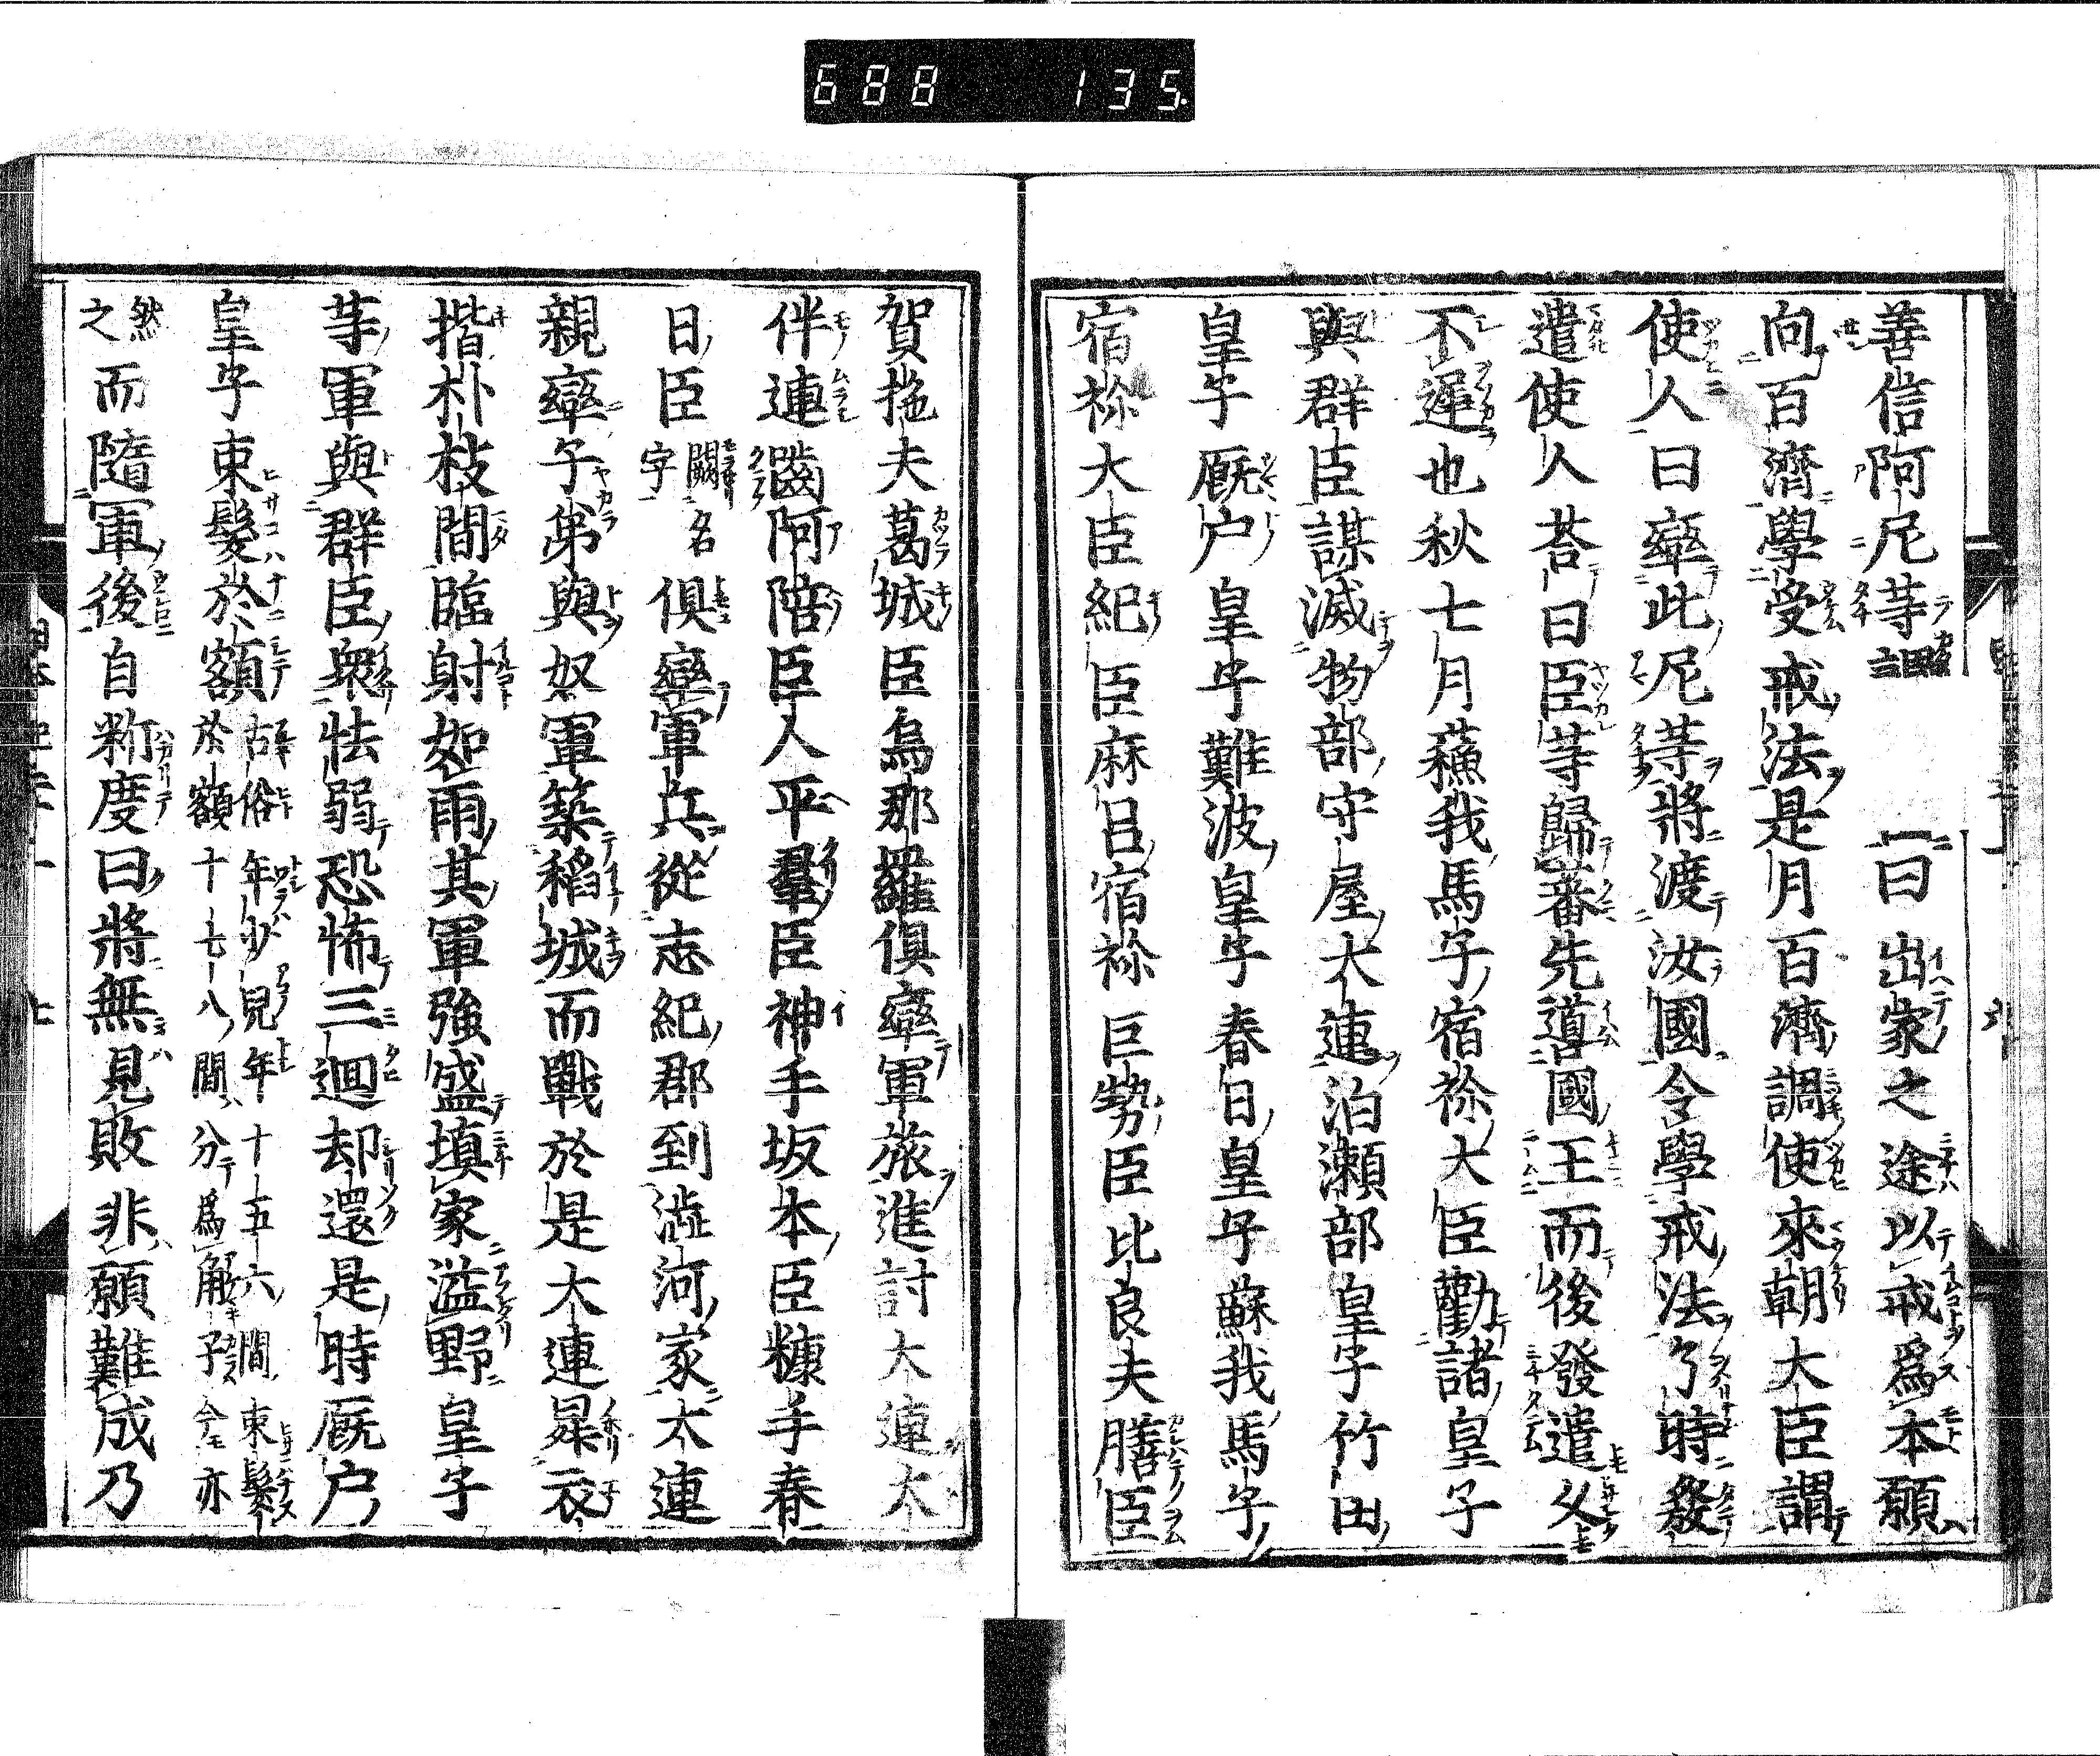 688 135
善信阿尼等謂大臣曰出家之途以戒爲本願
向百濟學受戒法是月百濟調使來朝大臣謂
使人曰率此尼等將渡汝國令學戒法了時發
遣使人荅曰臣等歸蕃先導國王而後發遣亦
不遲也秋七月蘓我馬子宿祢大臣勸諸皇子
與群臣謀滅物部守屋大連泊瀨部皇子竹田
皇子厩戸皇子難波皇子春日皇子蘇我馬子
宿祢大臣紀臣麻呂宿祢巨勢臣比良夫膳臣
賀拖夫葛城臣烏那羅俱率軍旅進討大連大
伴連嚙阿陪臣人平羣臣神手坂本臣糠手春
日臣闕名字俱率軍兵從志紀郡到澁河家大連
親率子弟與奴軍築稻城而戰於是大連昇衣
揩朴枝間臨射如雨其軍強盛填家溢野皇子
等軍與群臣衆怯弱恐怖三迴却還是時厩戸
皇子束髮於額古俗年少兒年十五六間束髮於額十七八間分爲角子今亦
然之而隨軍後自斯度曰將無見敗非願難成乃